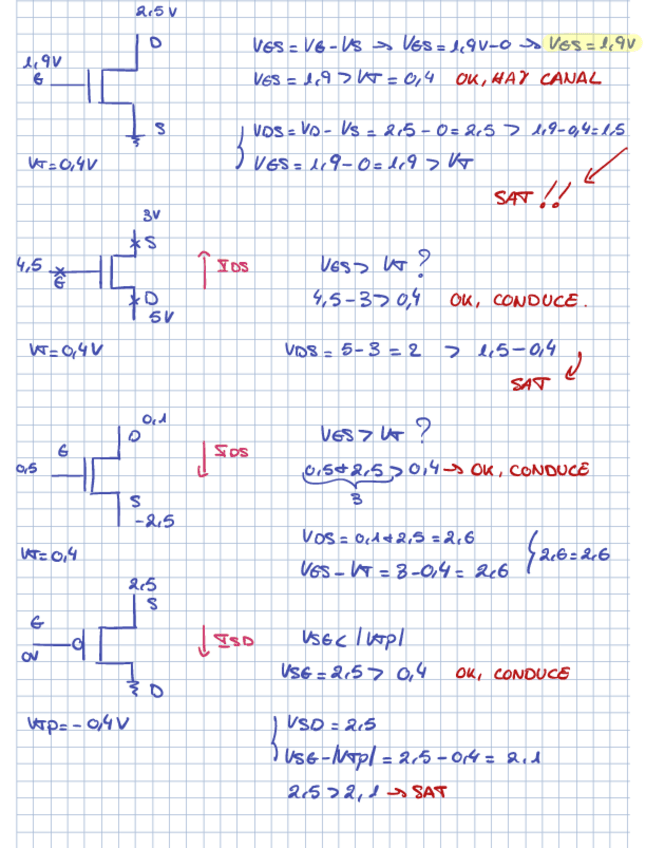 2,5 V
D
VGS = VG - VS → VGS = 1,9V - 0 → VGS = 1,9V
1,9V
G
VGS = 1,9 > VT = 0,4 OK, HAY CANAL
S
VDS = VD - VS = 2,5 - 0 = 2,5 > 1,9 - 0,4 = 1,5
VT = 0,4V
VGS = 1,9 - 0 = 1,9 > VT
SAT !!
3V
S
4,5
G
IDS
VGS > VT ?
D
4,5 - 3 > 0,4 OK, CONDUCE.
5V
VT = 0,4V
VDS = 5 - 3 = 2 > 1,5 - 0,4
SAT
0,1
D
VGS > VT ?
G
IDS
0,5
0,5 + 2,5 > 0,4 → OK, CONDUCE
3
S
-2,5
VDS = 0,1 + 2,5 = 2,6
VT = 0,4
VGS - VT = 3 - 0,4 = 2,6
2,6 = 2,6
2,5
S
G
0V
ISD
VSG < |VTP|
VSG = 2,5 > 0,4 OK, CONDUCE
D
VTP = - 0,4V
VSD = 2,5
VSG - |VTP| = 2,5 - 0,4 = 2,1
2,5 > 2,1 → SAT